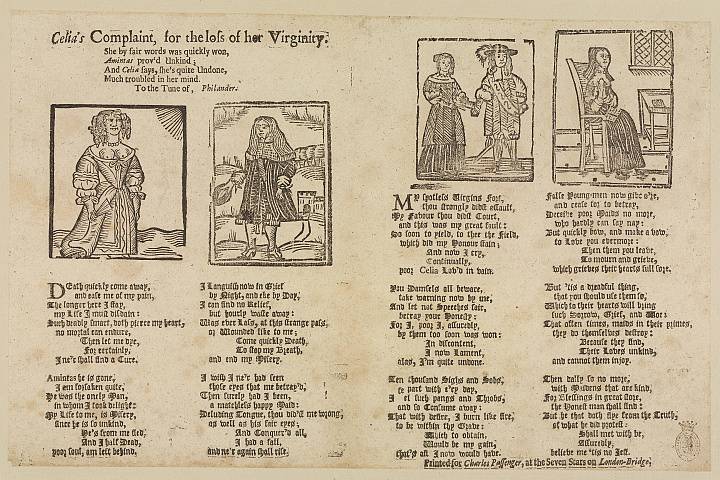 Celia's Complaint, for the loss of her Virginity.
She by fair words was quickly won,
Amintas prov'd Unkind;
And Celia says, she's quite Undone,
Much troubled in her mind.
To the Tune of, Philander.
DEath quickly come away,
and ease me of my pain,
The longer here I stay,
my Life I must disdain:
Such deadly smart, doth pierce my heart,
no mortal can endure,
Then let me dye,
For certainly,
I ne'r shall find a Cure.
Amintas he is gone,
I am forsaken quite,
He was the onely Man,
in whom I took delight:
My Life to me, is Misery,
since he is so unkind,
He's from me fled,
And I half Dead,
poor soul, am left behind.
I Languish now in Grief
by Night, and eke by Day,
I can find no Relief,
but hourly waste away:
Was ever Lass, at this strange pass,
or Wounded like to me;
Come quickly Death,
To stop my Breath,
and end my Misery.
I wish I ne'r had seen
those eyes that me betray'd,
Then surely had I been,
a matchless happy Maid:
Deluding Tongue, thou did'st me wrong,
as well as his fair eyes;
And Conquer'd all,
I had a fall,
and ne'r again shall rise.
MY spotless Virgins Fort,
thou strongly didst assault,
My Favour thou didst Court,
and this was my great fault:
So soon to yield, to thee the Field,
which did my Honour stain;
And now I cry,
Continually,
poor Celia Lov'd in vain.
You Damsels all beware,
take warning now by me,
And let not Speeches fair,
betray your Honesty:
For I, poor I, assuredly,
by them too soon was won:
In discontent,
I now Lament,
alas, I'm quite undone.
Ten thousand Sighs and Sobs,
se part with e'ry day,
I el such pangs and Throbs,
and so Consume away:
That with desire, I burn like fire,
to be within thy Grave:
Which to obtain,
Would be my gain,
that's all I now would have.
False Young-men now give o're,
and cease for to betray,
Deceive poor Maids no more,
who hardly can say nay:
But quickly bow, and make a vow,
to Love you evermore:
Then them you leave,
To mourn and grieve,
which grieves their hearts full sore.
But 'tis a dreadful thing,
that you should use them so,
Which to their hearts will bring
such Sorrow, Grief, and Woe:
That often times, maids in their primes,
they do themselves destroy:
Because they find,
Their Loves unkind,
and cannot them injoy.
Then dally so no more,
with Maidens that are kind,
For Blessings in great store,
the Honest man shall find:
But he that doth flye from the Truth,
of what he did protest:
Shall met with be,
Assuredly,
believe me 'tis no Jest.
Printed for Charles Passenger, at the Seven Stars on London-Bridge.